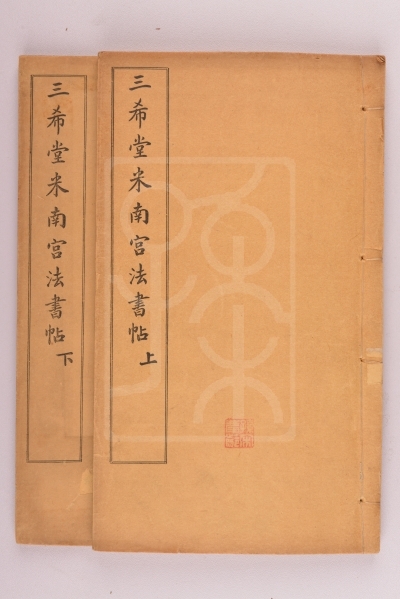 三希堂米南宮法書帖
上
三希堂米南宮法書帖
下